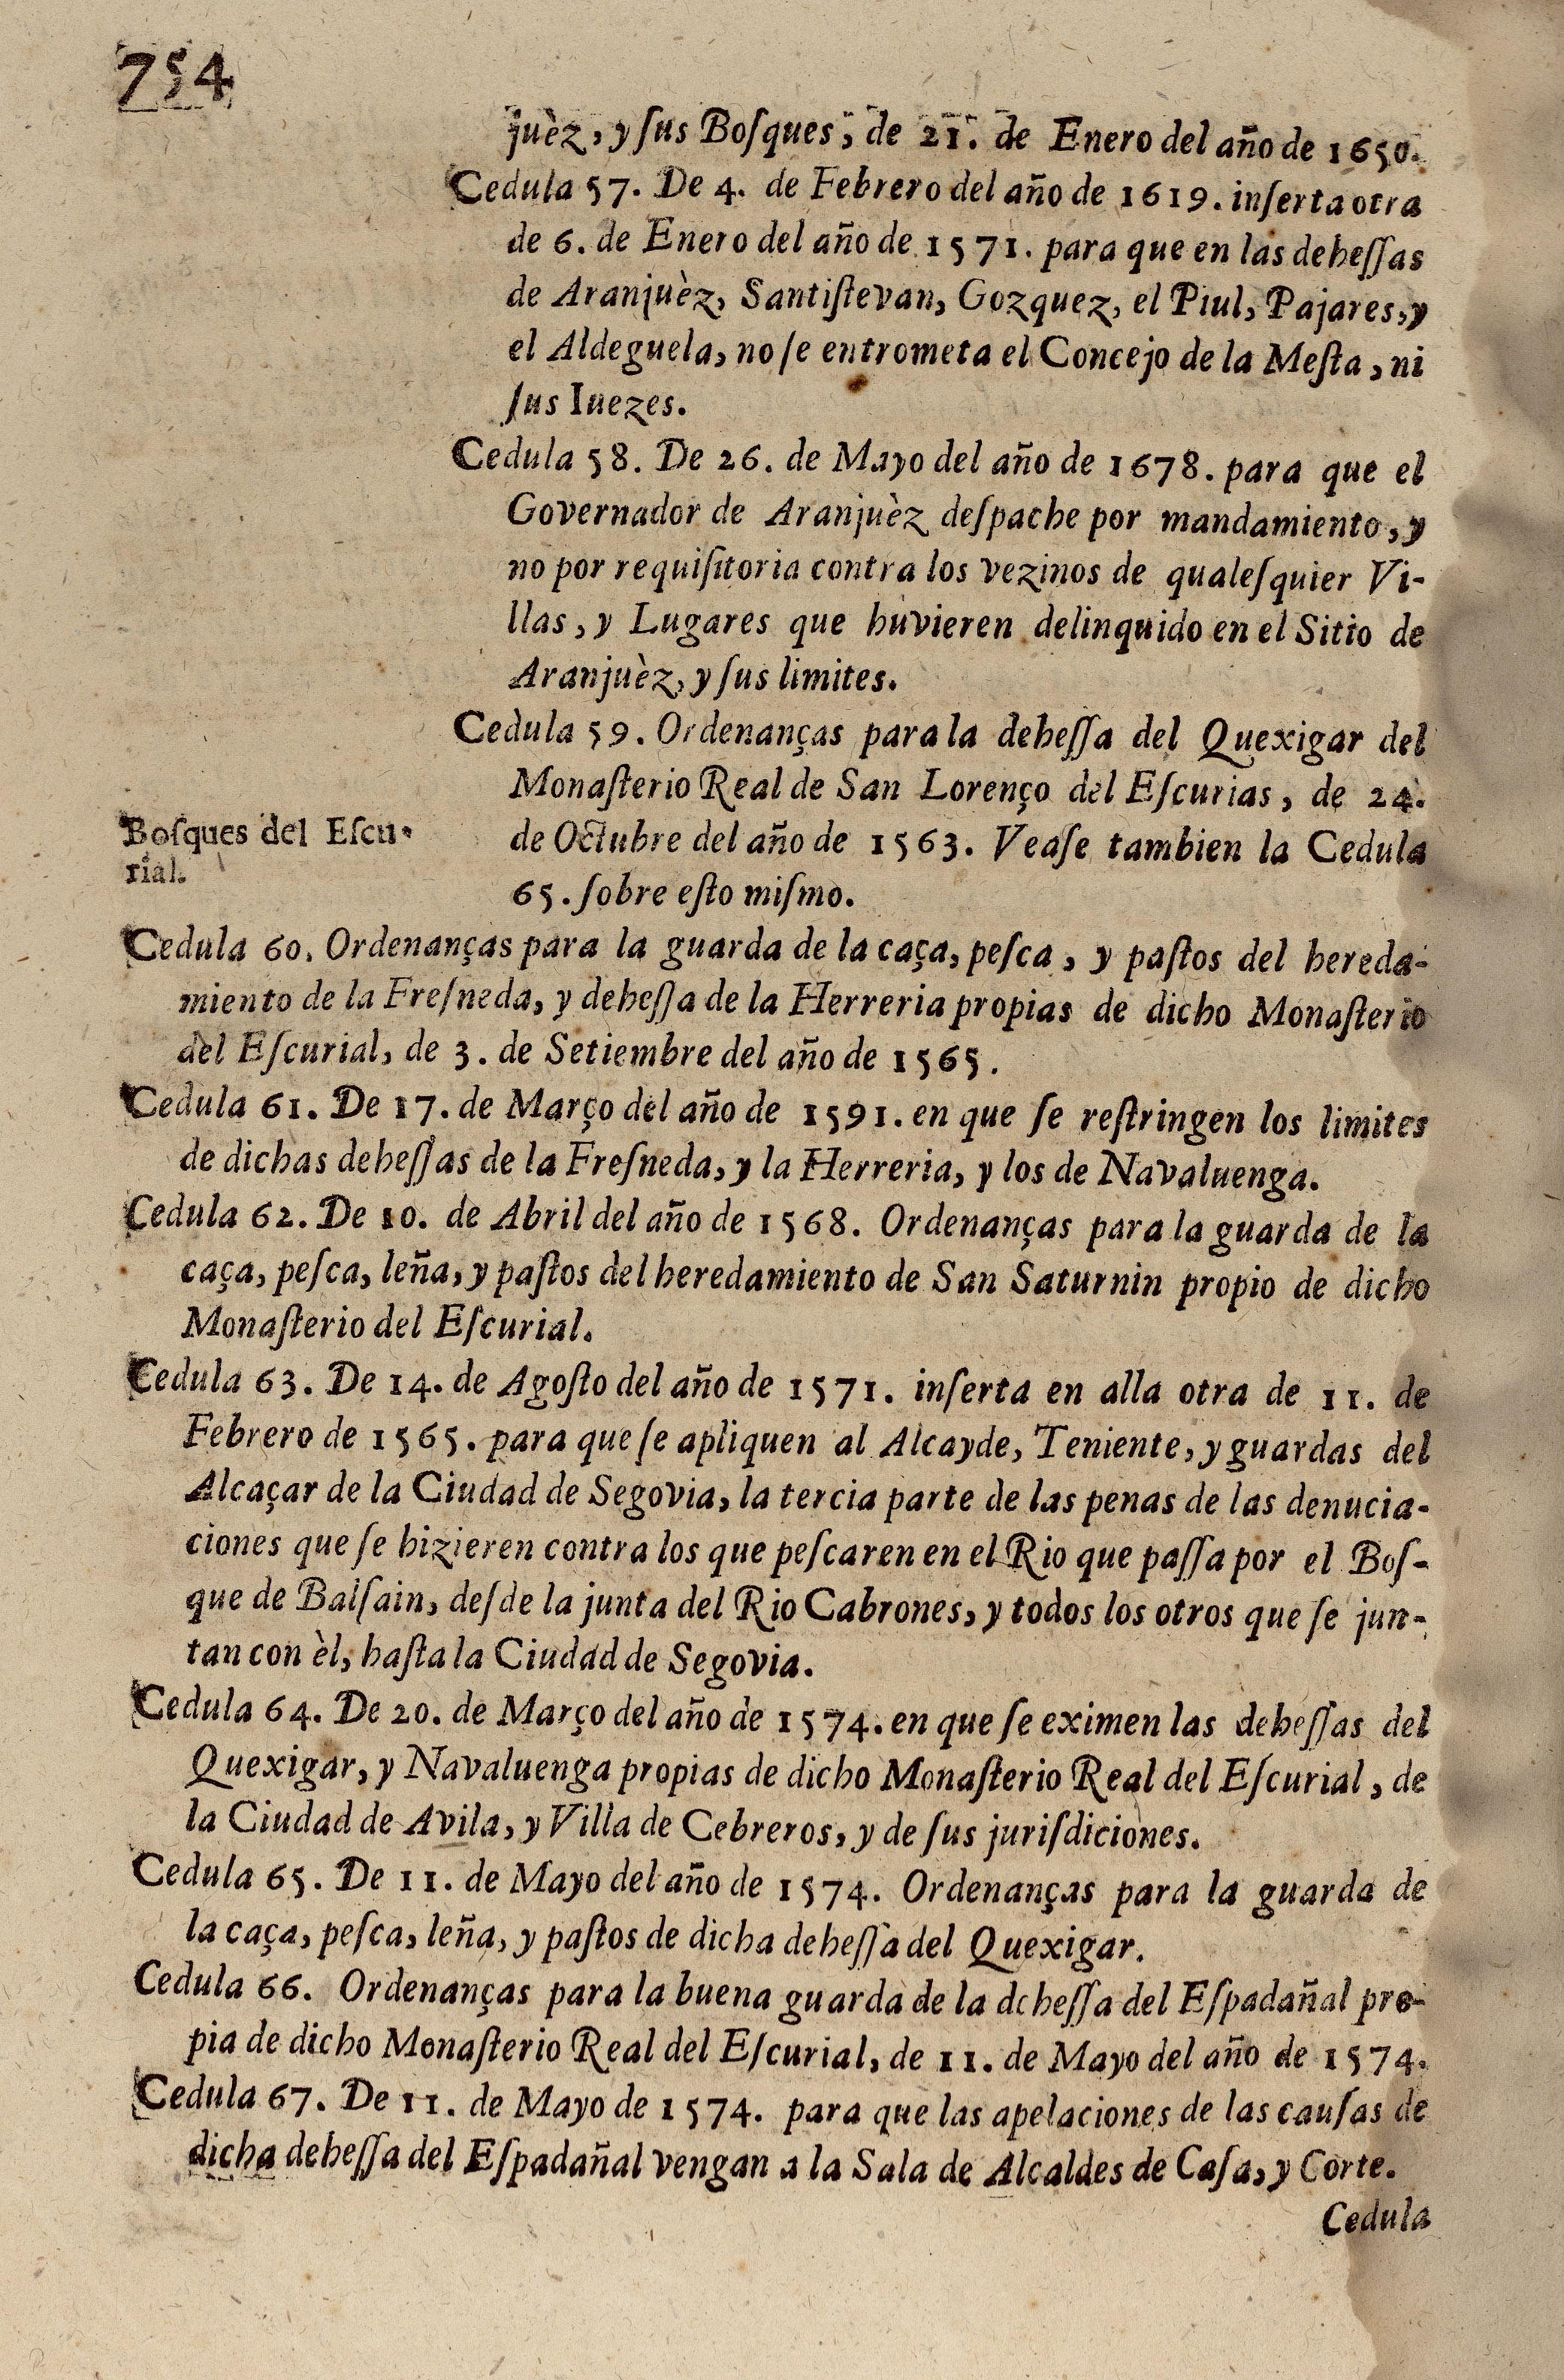 754
juèz, y ſus Boſques, de 21. de Enero del año de 1650.
Cedula 57. De 4. de Febrero del año de 1619. inſerta otra
de 6. de Enero del año de 1571. para que en las deheſſas
de Aranjuèz, Santiſtevan, Gozquez, el Piul, Pajares, y
el Aldeguela, no ſe entrometa el Concejo de la Meſta, ni
ſus Iuezes.
Cedula 58. De 26. de Mayo del año de 1678. para que el
Governador de Aranjuèz deſpache por mandamiento, y
no por requiſitoria contra los vezinos de qualeſquier Vi-
llas, y Lugares que huvieren delinquido en el Sitio de
Aranjuèz, y ſus limites.
Cedula 59. Ordenanças para la deheſſa del Quexigar del
Monaſterio Real de San Lorenço del Eſcurias, de 24.
de Octubre del año de 1563. Veaſe tambien la Cedula
65. ſobre eſto miſmo.
Boſques del Eſcu-
rial.
Cedula 60. Ordenanças para la guarda de la caça, peſca, y paſtos del hereda-
miento de la Freſneda, y deheſſa de la Herreria propias de dicho Monaſterio
del Eſcurial, de 3. de Setiembre del año de 1565.
Cedula 61. De 17. de Março del año de 1591. en que ſe reſtringen los limites
de dichas deheſſas de la Freſneda, y la Herreria, y los de Navaluenga.
Cedula 62. De 10. de Abril del año de 1568. Ordenanças para la guarda de la
caça, peſca, leña, y paſtos del heredamiento de San Saturnin propio de dicho
Monaſterio del Eſcurial.
Cedula 63. De 14. de Agoſto del año de 1571. inſerta en alla otra de 11. de
Febrero de 1565. para que ſe apliquen al Alcayde, Teniente, y guardas del
Alcaçar de la Ciudad de Segovia, la tercia parte de las penas de las denucia-
ciones que ſe hizieren contra los que peſcaren en el Rio que paſſa por el Boſ-
que de Balſain, deſde la junta del Rio Cabrones, y todos los otros que ſe jun-
tan con èl, haſta la Ciudad de Segovia.
Cedula 64. De 20. de Março del año de 1574. en que ſe eximen las deheſſas del
Quexigar, y Navaluenga propias de dicho Monaſterio Real del Eſcurial, de
la Ciudad de Avila, y Villa de Cebreros, y de ſus juriſdiciones.
Cedula 65. De 11. de Mayo del año de 1574. Ordenanças para la guarda de
la caça, peſca, leña, y paſtos de dicha deheſſa del Quexigar.
Cedula 66. Ordenanças para la buena guarda de la deheſſa del Eſpadañal pro-
pia de dicho Monaſterio Real del Eſcurial, de 11. de Mayo del año de 1574.
Cedula 67. De 11. de Mayo de 1574. para que las apelaciones de las cauſas de
dicha deheſſa del Eſpadañal vengan a la Sala de Alcaldes de Caſa, y Corte.
Cedula